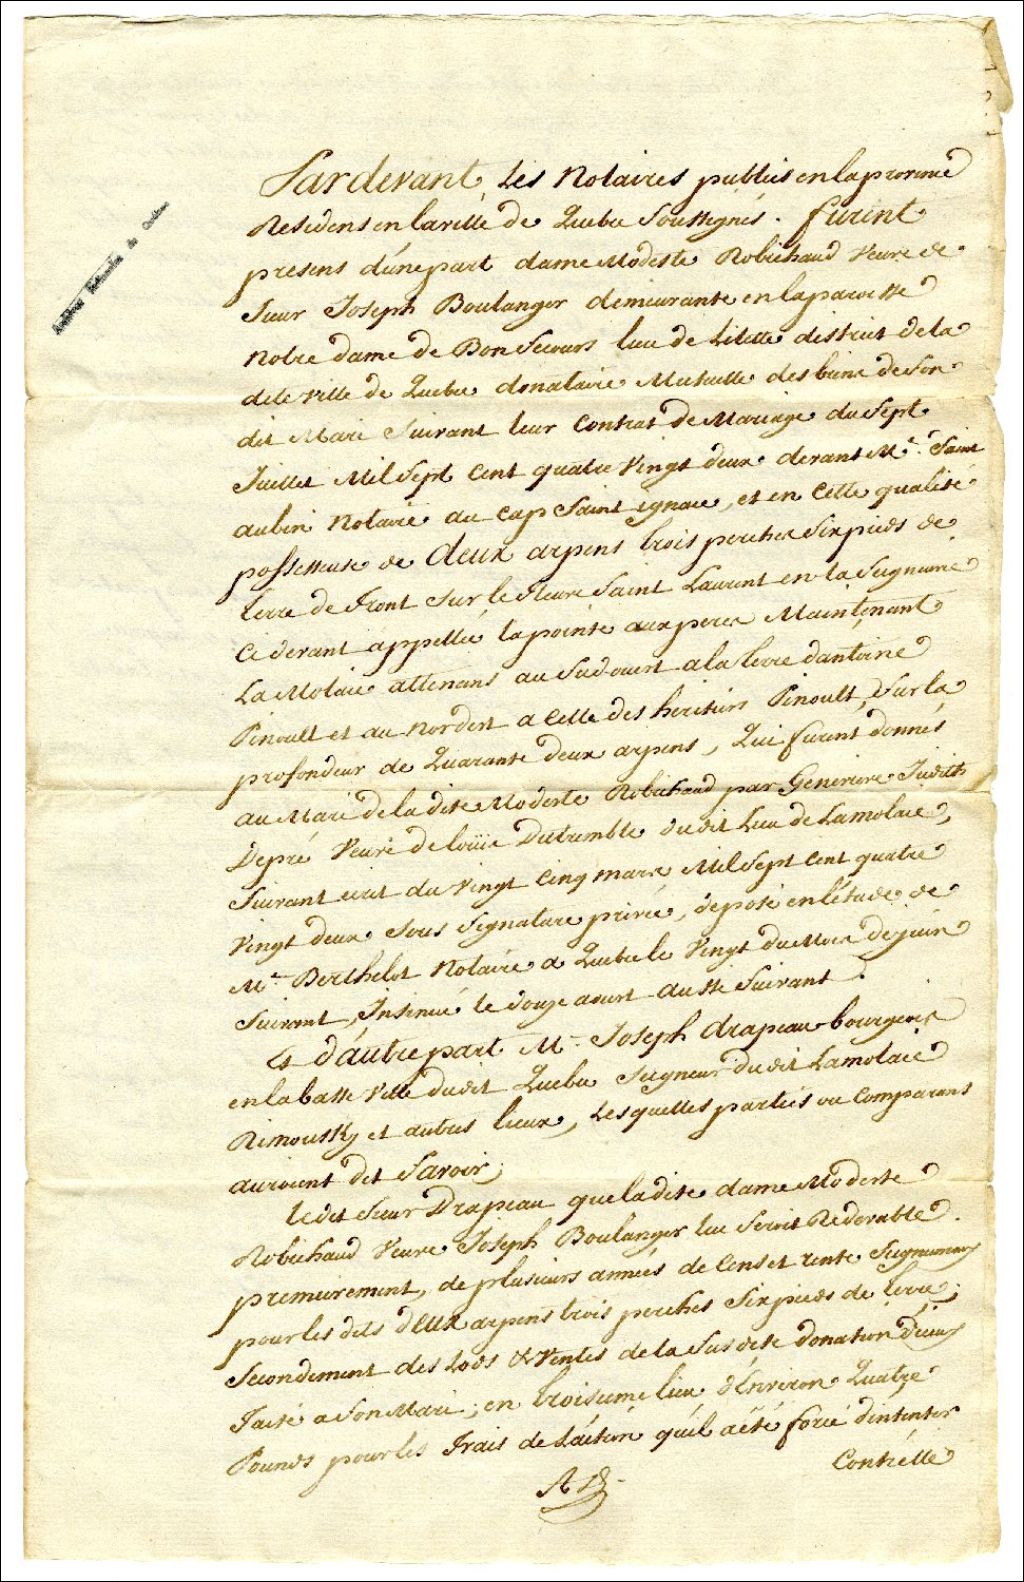 Pardevant Les Notaires publics en la province
Residens en la ville de Quebec Soussignés. furent
presens d'une part dame Modeste Robichaud Veuve de
Sieur Joseph Boulanger demeurante en la paroisse
Notre dame de Bon Secours lieu de Lilette district de la
dite ville de Quebec donataire Mutuelle des biens de Son
dit Mari Suivant leur Contrat de Mariage du Sept
Juillet Mil Sept Cent quatre Vingt deux devant Me. Saint
aubin Notaire au Cap Saint ignace, et en Cette qualité
possesseuse de deux arpens trois perches Six pieds de
terre de Front Sur le Fleuve Saint Laurent en la Seigneurie
Ci devant appellée la pointe aux peres Maintenant
La Molaie attenans au Sud-ouest a la terre d'antoine
Pinoult et au Nordest a Celle des heritiers Pinoult, Sur la
profondeur de Quarante deux arpens, Qui furent donnés
au Mari de la dite Modeste Robichaud par Genevieve Judith
Depré Veuve de loüis Dutremble du dit Lieu de Lamolaie,
Suivant ecrit du Vingt Cinq mars Mil Sept Cent quatre
Vingt deux Sous Signature privée, deposé en l'étude de
Me. Berthelot Notaire a Quebec le Vingt du Mois de juin
Suivant, Insinué le douze aoust aussi Suivant.
Et d'autre part Mr. Joseph drapeau bourgeois
en la basse Ville du dit Quebec Seigneur du dit Lamolaie
Rimousky et autres lieux, Lesquelles parties ou Comparans
auroient dit Savoir;
le dit Sieur Drapeau que la dite dame Modeste
Robichaud Veuve Joseph Boulanger lui Seroit Redevable
premierement, de plusieurs années de Cens et rente
pour les dits deux arpens trois perches Six pieds de terre;
Secondement des Lods & Ventes de la Susdite donation
Faite a Son Mari; en troisieme lieu d'Environ Quatre
Pounds pour les Frais de L'action qu'il a été forcé d'intenter
Contr'elle